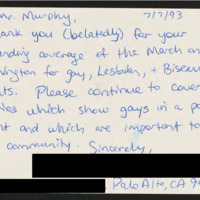 Mr. Murphy, 7/7/93
ank you (belatedly) for your
nding coverage of the March on
hington for gay, Lesbian, + Bisexu
ts. Please continue to cover
ies which show gays in a po
nt and which are important to
community. Sincerely,
Palo Alto, CA 94